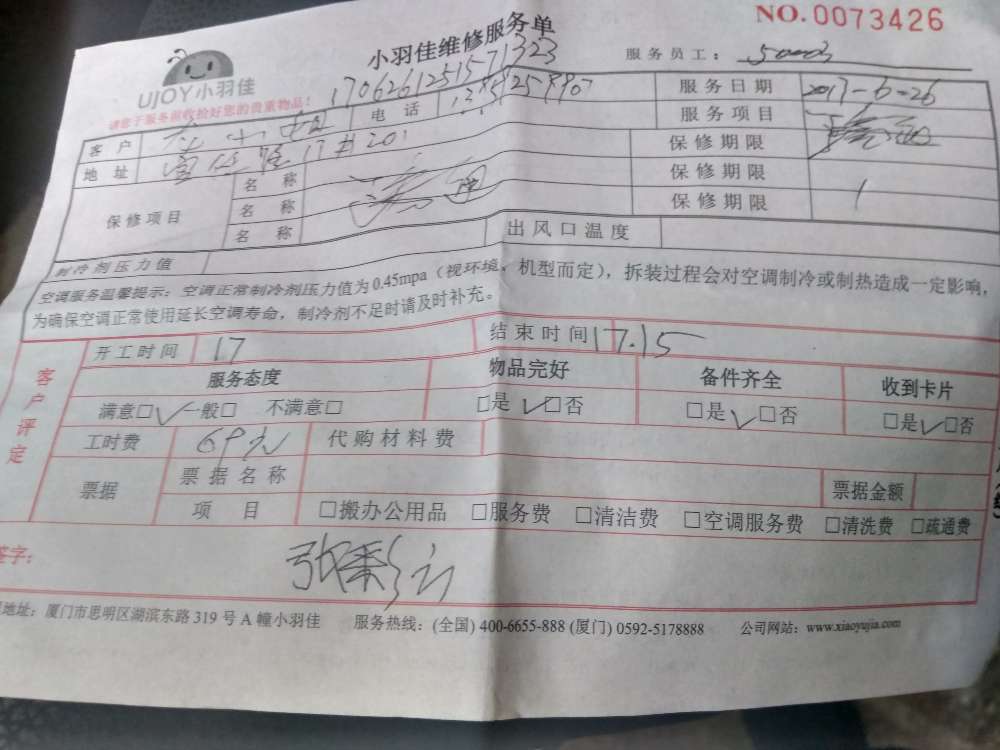 NO.0073426
小羽佳维修服务单
服务员工：
UJOY小羽佳
请您于服务前收拾好您的贵重物品！
1706261251571323
客户 电话 服务日期 2017-6-26
地址 服务项目
保修项目 名称 保修期限
名称 保修期限
名称 保修期限
制冷剂压力值 出风口温度
空调服务温馨提示：空调正常制冷剂压力值为0.45mpa（视环境、机型而定），拆装过程会对空调制冷或制热造成一定影响，
为确保空调正常使用延长空调寿命，制冷剂不足时请及时补充。
客户评定
开工时间 17 结束时间 17.15
服务态度 物品完好 备件齐全 收到卡片
满意□✓一般□ 不满意□ □是✓□否 □是✓□否 □是✓□否
工时费 69元 代购材料费
票据 票据名称 票据金额
项目 □搬办公用品 □服务费 □清洁费 □空调服务费 □清洗费 □疏通费
签字：
地址：厦门市思明区湖滨东路319号A幢小羽佳 服务热线：(全国) 400-6655-888 (厦门) 0592-5178888 公司网站：www.xiaoyujia.com